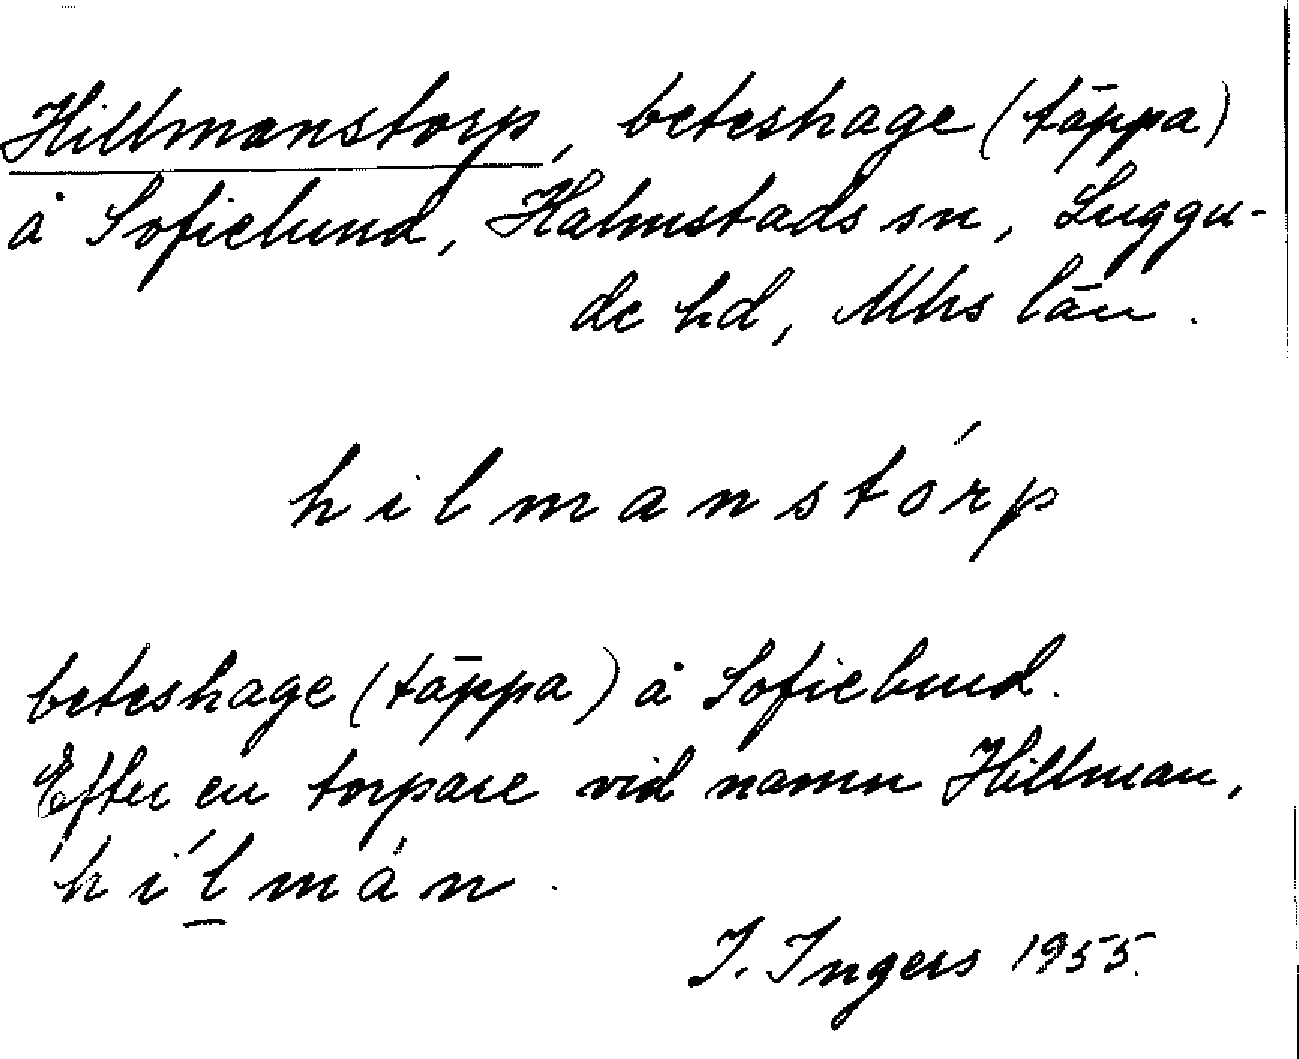 Hillmanstorp, beteshage (täppa)
å Sofielund, Halmstads sn, Luggu-
de hd, Mhs län.
hilmanstórp
beteshage (täppa) å Sofielund.
Efter en torpare vid namn Hillman,
híl̲màn.
I. Ingers 1955.